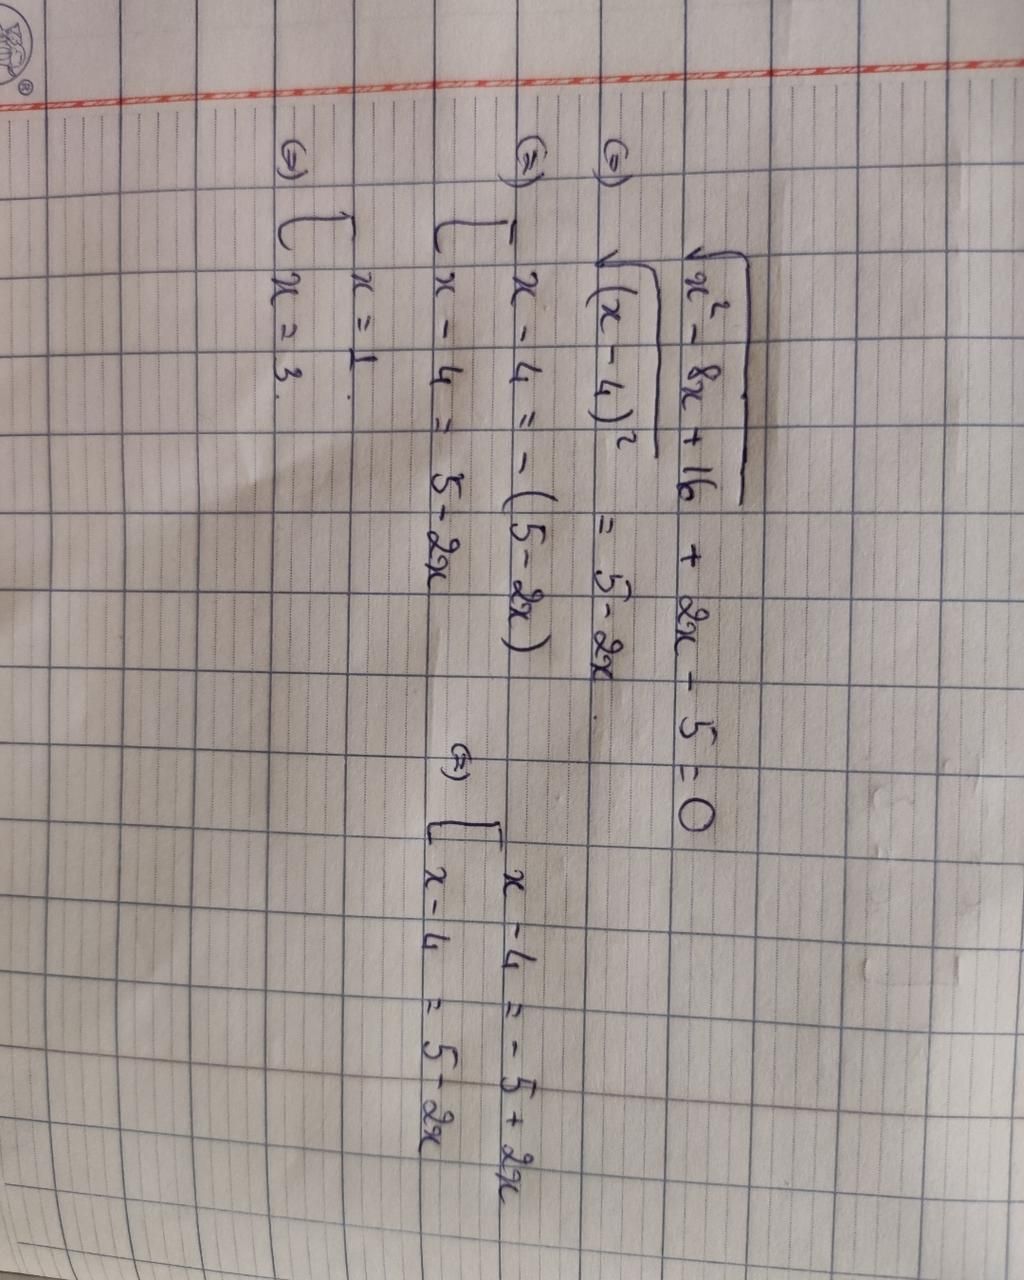 √(x² - 8x + 16) + 2x - 5 = 0
(=) √((x - 4)²) = 5 - 2x.
(=) [ x - 4 = - (5 - 2x)
[ x - 4 = 5 - 2x
(=) [ x - 4 = - 5 + 2x
[ x - 4 = 5 - 2x
(=) [ x = 1.
[ x = 3.
®